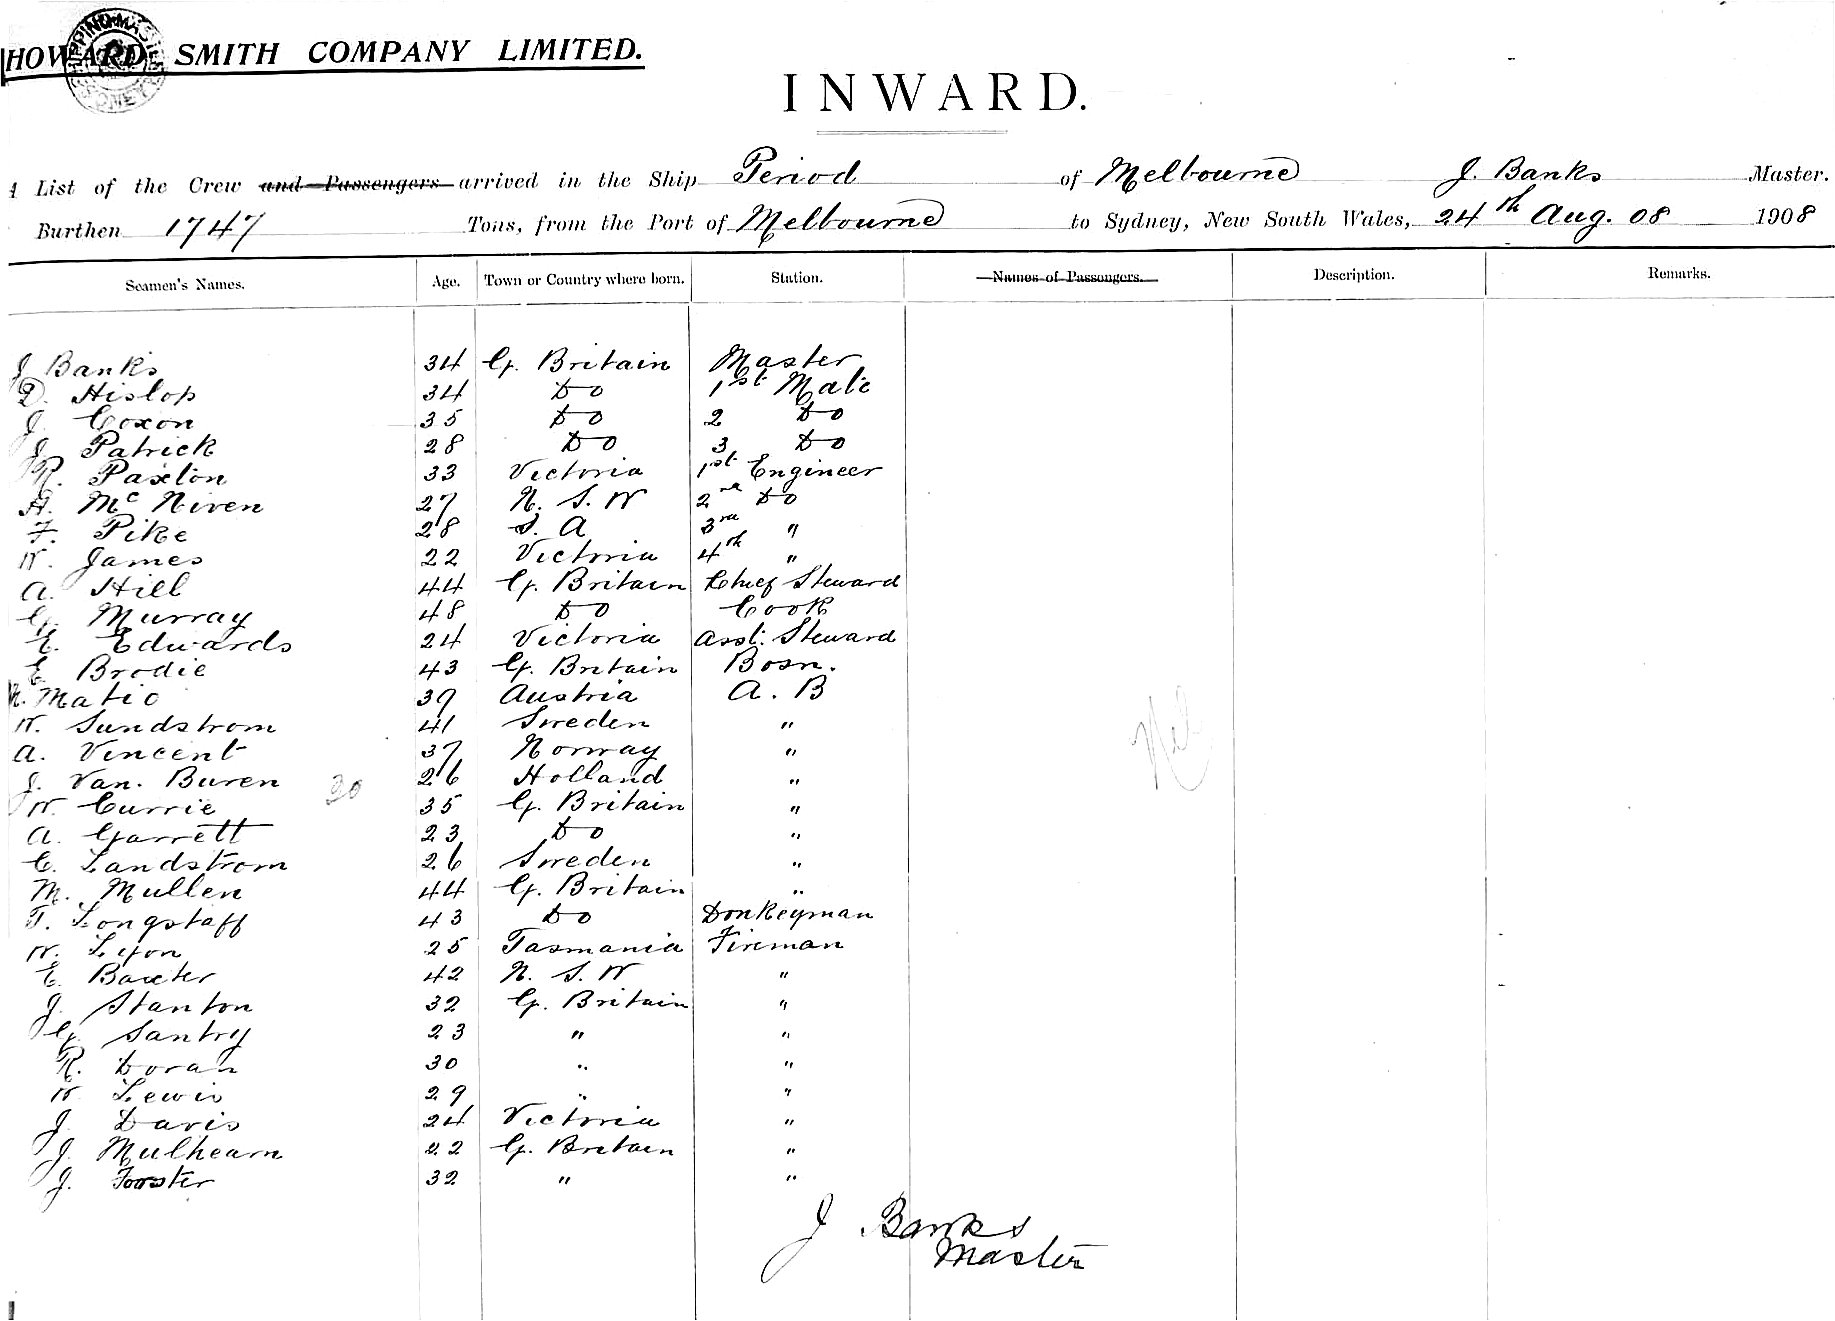 HOWARD SMITH COMPANY LIMITED.
INWARD.
List of the Crew and Passengers arrived in the Ship Period of Melbourne J. Banks Master.
Burthen 1747 Tons, from the Port of Melbourne to Sydney, New South Wales, 24th Aug. 08 1908
Seamen's Names. Age. Town or Country where born. Station. Names of Passengers. Description. Remarks.
J Banks 34 G. Britain Master
D. Hislop 34 Do 1st Mate
J. Coxon 35 Do 2 Do
J. Patrick 28 Do 3 Do
R. Paxton 33 Victoria 1st Engineer
A. McNiven 27 N. S. W 2nd Do
F. Pike 28 S. A 3rd "
W. James 22 Victoria 4th "
A. Hill 44 G. Britain Chief Steward
G. Murray 48 Do Cook
E. Edwards 24 Victoria Asst. Steward
E. Brodie 43 G. Britain Bosn.
Matic 39 Austria A. B
W. Sundstrom 41 Sweden "
A. Vincent 37 Norway "
J. Van. Buren 30 26 Holland "
W. Currie 35 G. Britain "
A. Garrett 23 Do "
C. Landstrom 26 Sweden "
M. Mullen 44 G. Britain "
T. Longstaff 43 Do Donkeyman
W. Lyon 25 Tasmania Fireman
E. Baxter 42 N. S. W "
J. Stanton 32 G. Britain "
G. Santry 23 " "
R. Doran 30 " "
W. Lewis 29 " "
J. Davis 24 Victoria "
J. Mulhearn 22 G. Britain "
J. Forster 32 " "
Nil
J Banks
Master